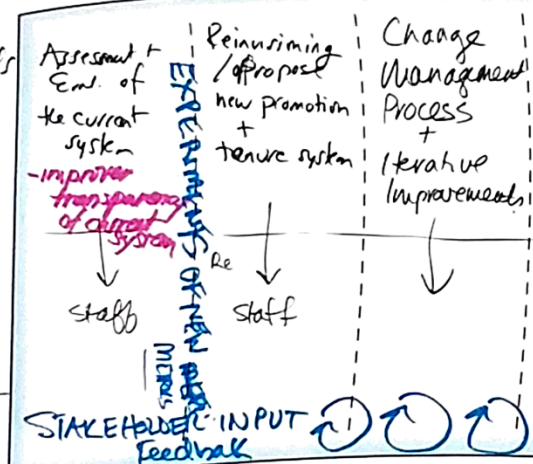 Assessment +
Eval. of
the current
system
-improve
transparency
of current
system
Staff
EXPERIMENTS OF NEW
METRICS
Reinvisining
/propose
new promotion
+
tenure system
Re
Staff
Change
Management
Process
+
Iterative
Improvements
STAKEHOLDER INPUT
Feedback